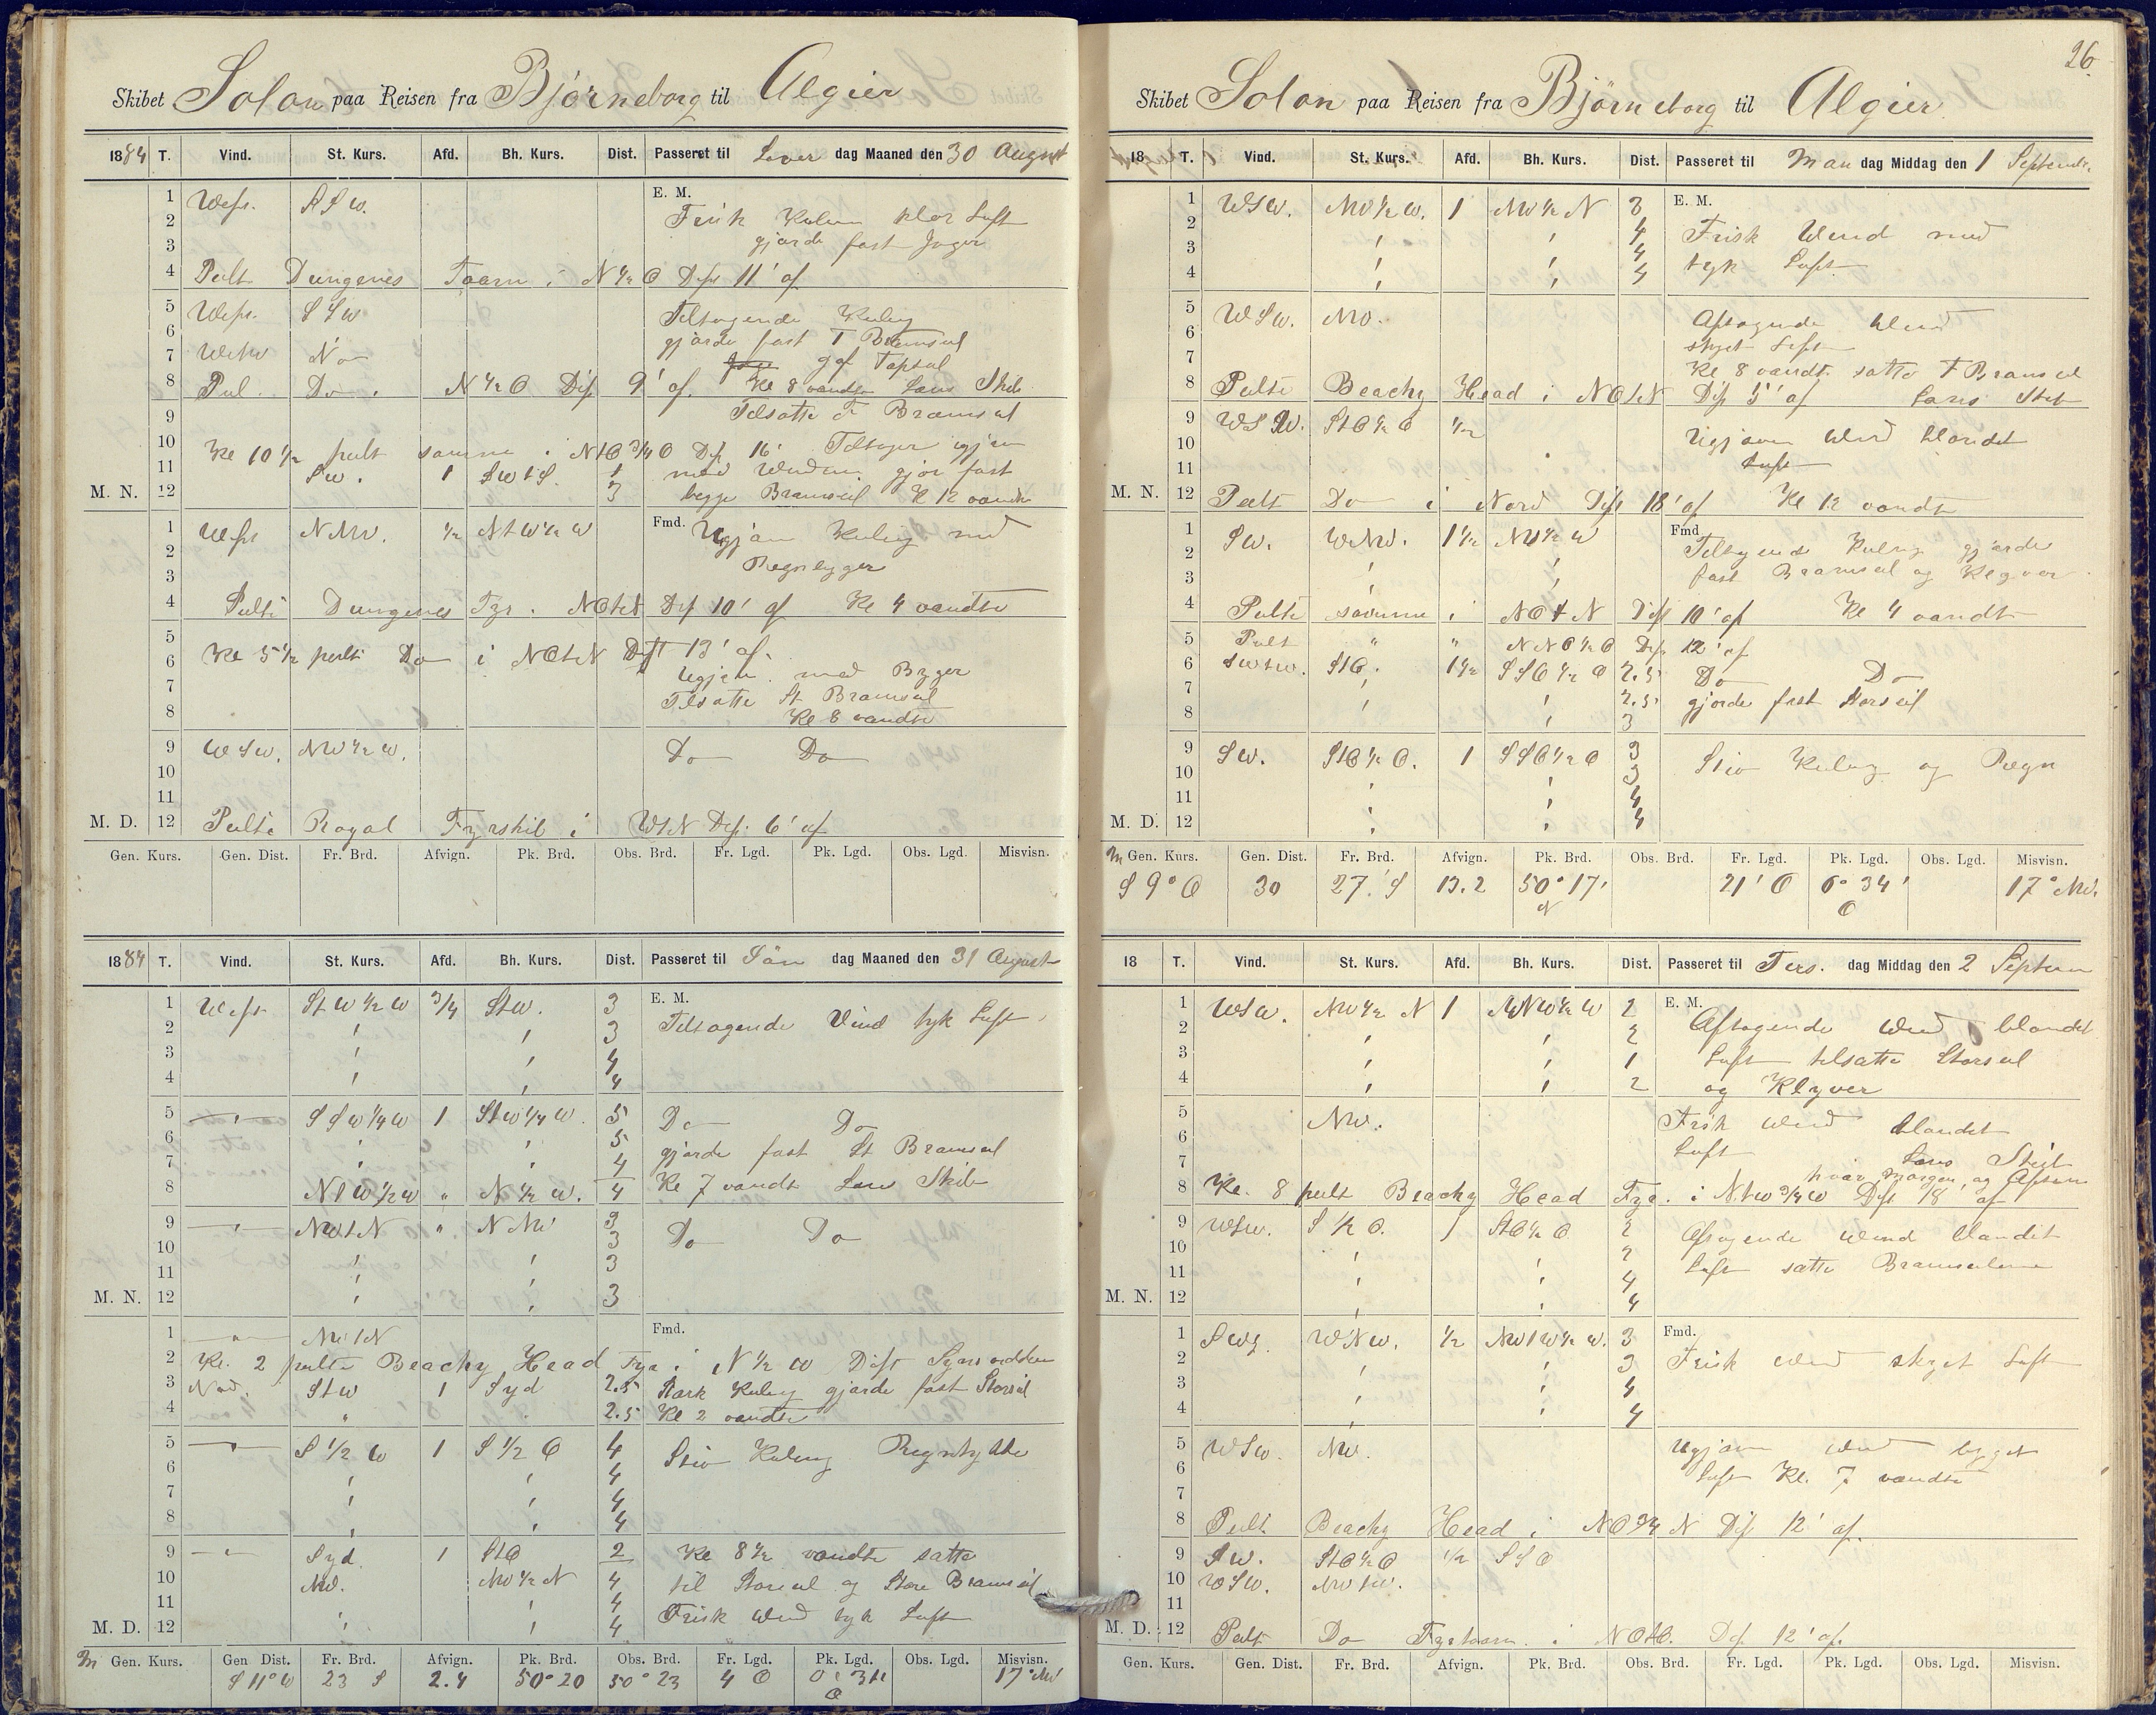 Skibet Solon paa Reisen fra Björneborg til Algier
1884 T. Vind. St. Kurs. Afd. Bh. Kurs. Dist. Passeret til Löver dag Maaned den 30 August
E. M.
1 West. SSW.
2 Frisk Kuling klar Luft
3 gjorde fast Jager
4 Peilt Dungenes Taarn i N 1/2 O Dist 11' af
5 West. SSW Tiltagende Kuling
6 gjorde fast F Bramseil
7 Do
8 Peil. Do. N 1/2 O Dis 9' af. Kl 8 vendte Lens Skib
9 Tilsatte F Bramseil
10 Kl 10 1/2 peilt samme i NtO 3/4 O Dis 16' Tiltager igjen
11 SW. 1 SWtS. 1 med Vinden gjör fast
M. N. 12 3 begge Bramseil Kl 12 vendte
Fmd.
1 West NNW. 1/2 NtW 1/2 W Ugjævn Kuling med
2 Regnbyger
3
4 Peilte Dungenes Fyr i NOtN Dis 10' af Kl 4 vendte
5
6 Kl 5 1/2 peilt Do i NOtN Dist 13' af.
Ugjævn med Byger
7 Tilsatte St Bramseil
8 Kl 8 vendte
9 WSW. NW 1/2 W. Do Do
10
11
M. D. 12 Peilte Royal Fyrskib i WtN Dis. 6' af
Gen. Kurs. Gen. Dist. Fr. Brd. Afvign. Pk. Brd. Obs. Brd. Fr. Lgd. Pk. Lgd. Obs. Lgd. Misvisn.
1884 T. Vind. St. Kurs. Afd. Bh. Kurs. Dist. Passeret til Sön dag Maaned den 31 August
E. M.
1 West StW 1/2 W 3/4 StW. 3
2 ' ' 3 Tiltagende Vind tyk Luft
3 ' ' 4
4 ' ' 4
5 " SSW 1/4 W 1 StW 1/4 W. 5 Do Do
6 ' ' 5 gjorde fast St Bramseil
7 ' ' 4 Kl 7 vendt Lens Skib
8 NtW 1/2 W " N 1/2 W. 4
9 " NWtN " NNW 3
10 ' ' 3 Do Do
11 ' ' 3
M. N. 12 ' ' 3
Fmd.
1 " NWtN
2 Kl. 2 peilte Beachy Head Fyr i N 1/2 W Dist Synsvidden
3 StW 1 Syd 2.5 Stærk Kuling gjorde fast Storseil
4 " 2.5 Kl 2 vendte
5 " S 1/2 W 1 S 1/2 O 4 Stiv Kuling Regntykke
6 ' ' 4
7 ' ' 4
8 ' ' 4
9 " Syd 1 StO 2 Kl 8 1/2 vendte satte
10 NW. NW 1/2 N 4 til Storseil og Store Bramseil
11 ' 4
M. D. 12 ' ' 4 Frisk Vind tyk Luft
Gen. Kurs. Gen Dist. Fr. Brd. Afvign. Pk. Brd. Obs. Brd. Fr. Lgd. Pk. Lgd. Obs. Lgd. Misvisn.
S 11° W 23 S 2.4 50° 20 50° 23 4 O O 17° NW
26
Skibet Solon paa Reisen fra Björneborg til Algier
18 T. Vind. St. Kurs. Afd. Bh. Kurs. Dist. Passeret til Man dag Middag den 1 Septembr.
E. M.
1 WSW. NW 1/2 W. 1 NW 1/2 N 3
2 ' ' 4 Frisk Vind med
3 ' ' 4 tyk Luft
4 ' ' 4
5 WSW. NW. Aftagende Vind
6 skyet Luft
7 Kl 8 vendt. satte F Bramseil
8 Peilte Beachy Head i NOtN Dis 5' af Lens Skib
9 WSW. StO 1/2 O 1/2 Ugjævn Vind blandet
10 Luft
11
M. N. 12 Peilt Do i Nord Dis 18' af Kl 12 vendt
Fmd.
1 SW. WNW. 1 1/2 NW 1/2 W Tiltagende Kuling gjorde
2 ' ' fast Bramseil og Klyver
3 ' '
4 Peilte samme i NOtN Dist 10' af Kl 4 vendt
5 Peilt " " NNO 1/2 O Dis 12' af
6 SWtW. StO. 1 1/2 SSO 1/2 O 2.5 Do Do
7 ' ' 2.5 gjorde fast Storseil
8 ' 3
9 SW. StO 1/2 O. 1 SSO 1/2 O 3 Stiv Kuling og Regn
10 ' ' 3
11 ' ' 4
M. D. 12 ' ' 4
Gen. Kurs. Gen. Dist. Fr. Brd. Afvign. Pk. Brd. Obs. Brd. Fr. Lgd. Pk. Lgd. Obs. Lgd. Misvisn.
S 9° O 30 27.' S 13.2 50° 17' N 21' O 0° 34' O 17° NW.
18 T. Vind. St. Kurs. Afd. Bh. Kurs. Dist. Passeret til Tirs. dag Middag den 2 Septem
E. M.
1 WSW. NW 1/2 N 1 NNW 1/2 W 2
2 ' ' 2 Aftagende Vind blandet
3 ' ' 1 Luft tilsatte Storseil
4 ' ' 2 og Klyver
5 NW. Frisk Vind blandet
6 Luft
7 Lens Skib
hver Morgen og Aften
8 Kl. 8 peilt Beachy Head Fyr. i NtW 3/4 W Dist 18' af
9 WSW. S 1/2 O. 1 StO 1/2 O 2 Aftagende Vind blandet
10 ' ' 2 Luft satte Bramseilene
11 ' ' 4
M. N. 12 ' ' 4
Fmd.
1 WNW. 1/2 NWtW 1/2 W. 3
2 ' ' 3 Frisk Vind skyet Luft
3 ' ' 4
4 ' ' 4
5 WSW. NW. Ugjævn Vind byget
6 Luft Kl. 7 vendte
7
8 Peilt. Beachy Head i NO 3/4 N Dis 12' af.
9 SW. StO 1/2 O 1/2 SSO
10 WSW. NWtW.
11
M. D. 12 Peilt Do Fyrtaarn. i NOtO. Dis 12' af.
Gen. Kurs. Gen. Dist. Fr. Brd. Afvign. Pk. Brd. Obs. Brd. Fr. Lgd. Pk. Lgd. Obs. Lgd. Misvisn.